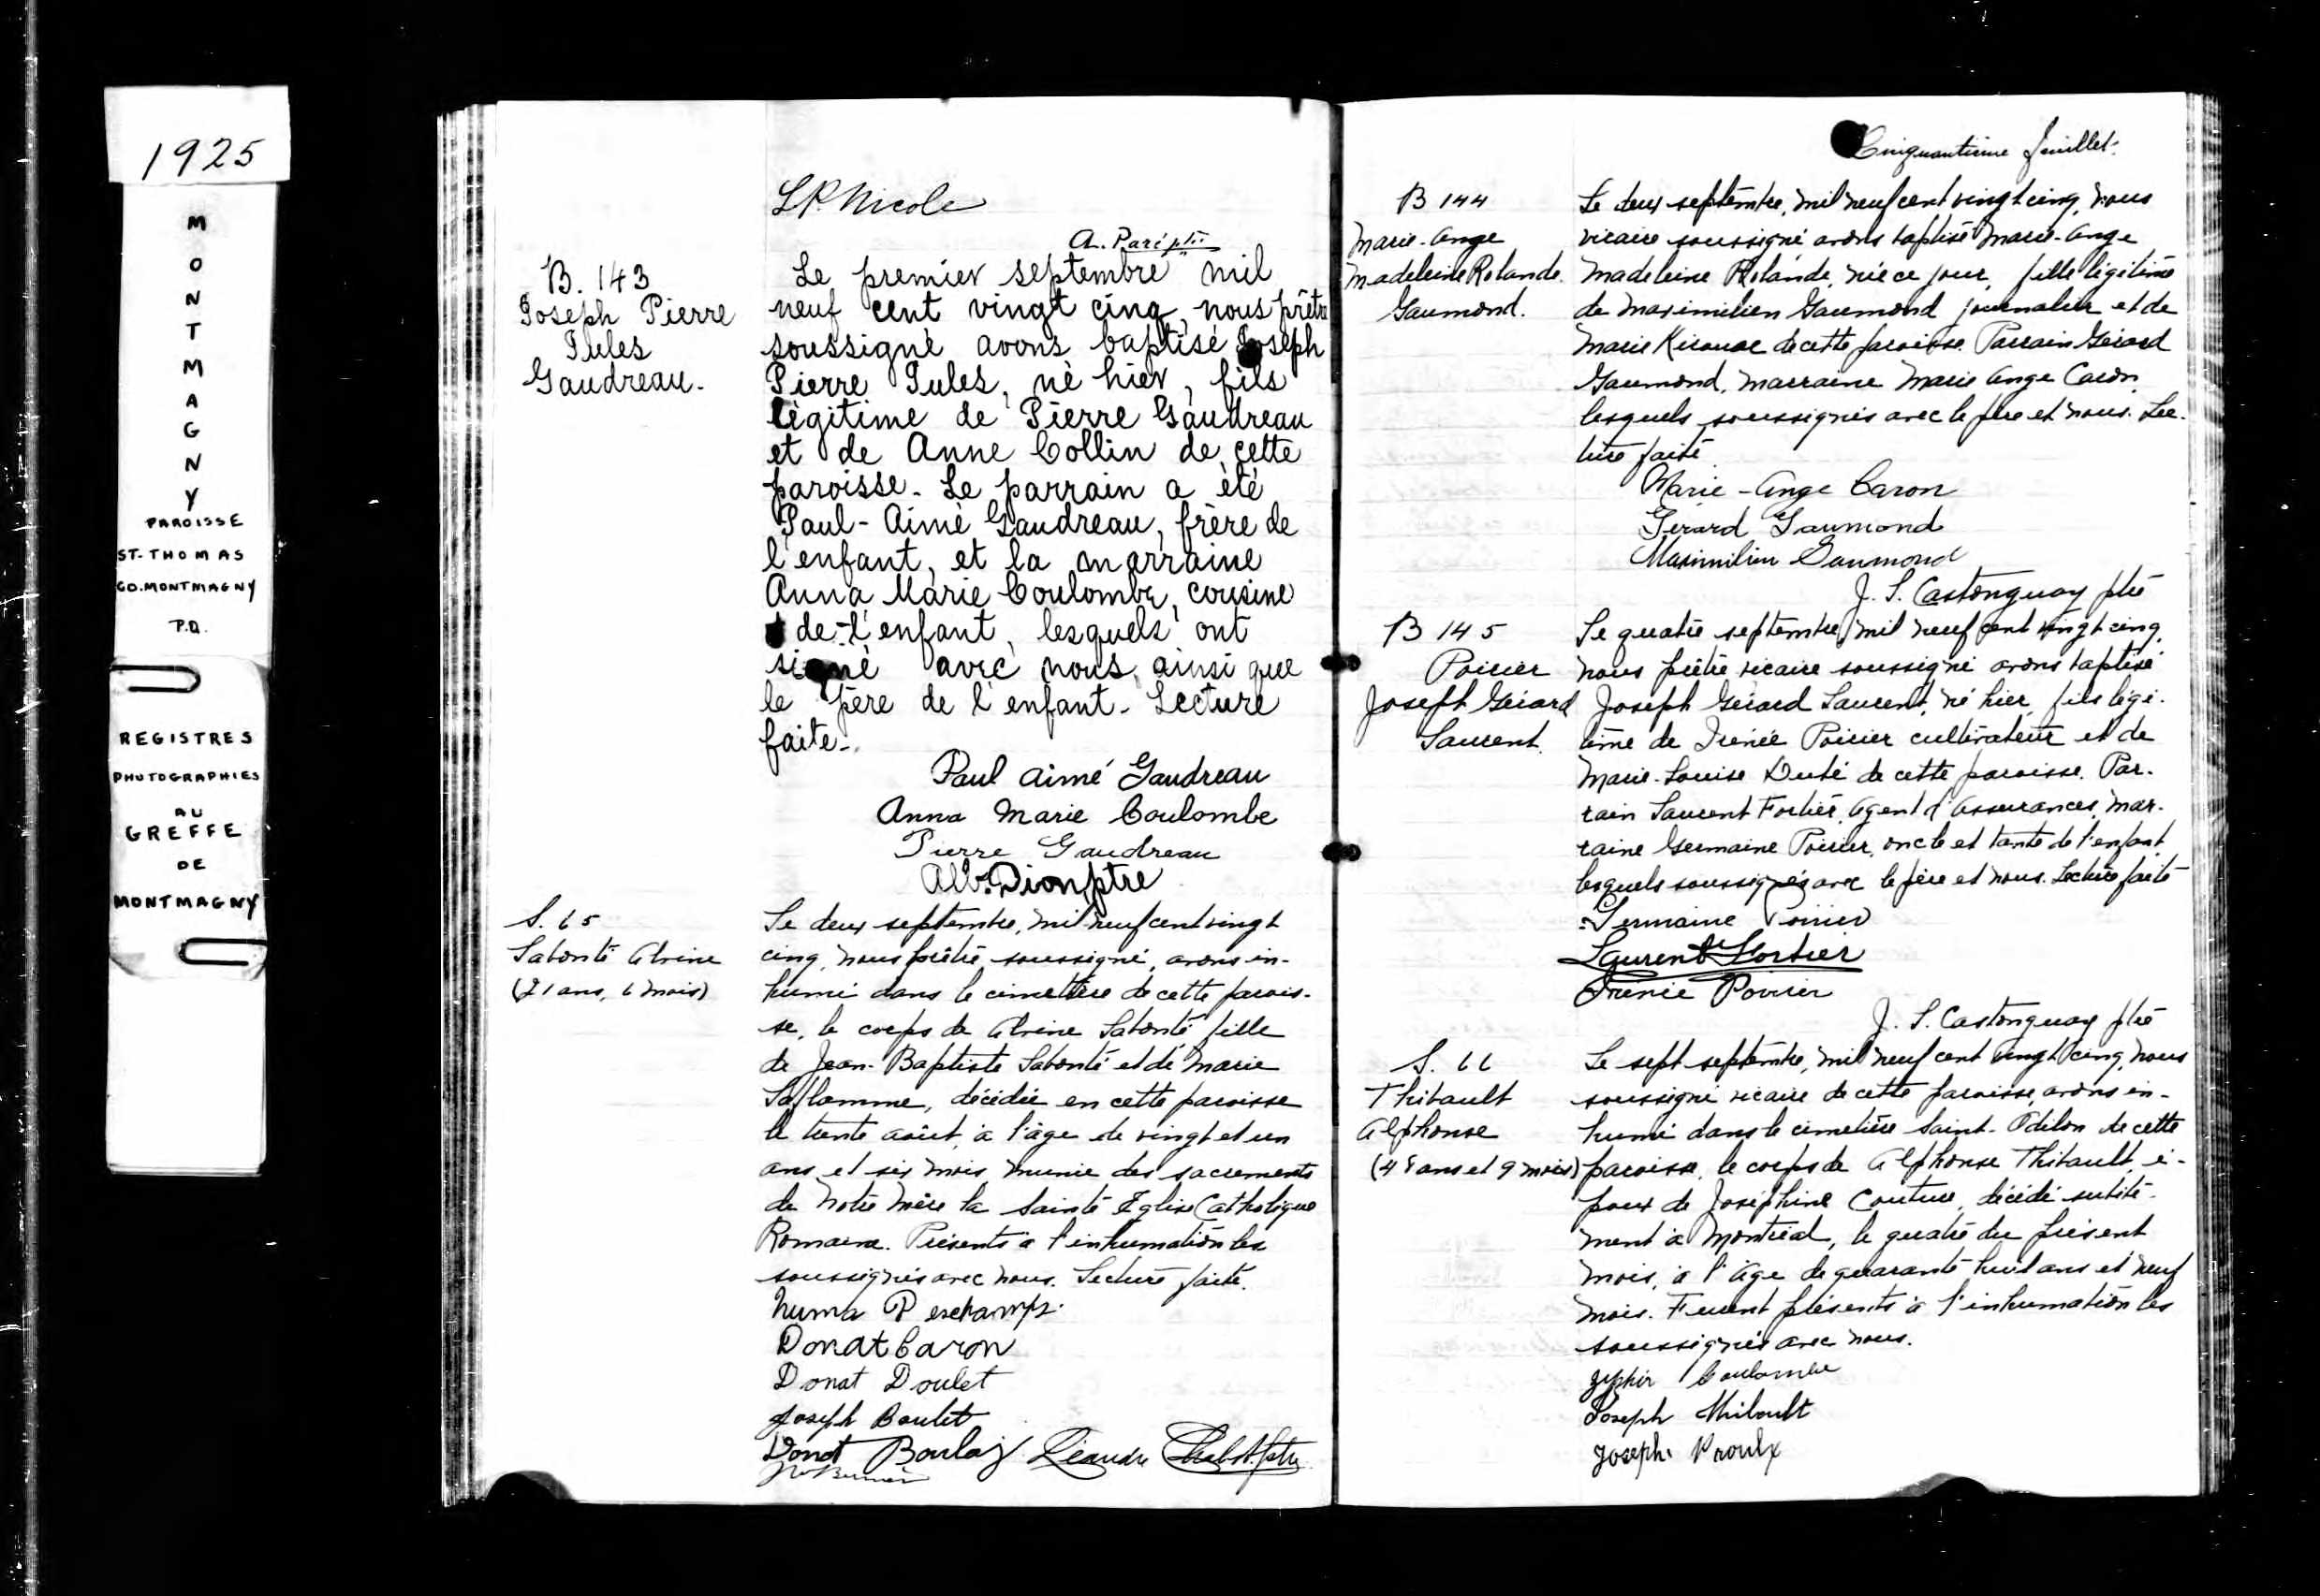 1925
MONTMAGNY
PAROISSE
ST-THOMAS
CO. MONTMAGNY
P.Q.
REGISTRES
PHOTOGRAPHIES
AU
GREFFE
DE
MONTMAGNY
L.P. Nicole
A. Paré ptre
B. 143
Joseph Pierre
Jules
Gaudreau.
Le premier septembre mil
neuf cent vingt cinq, nous prêtre
soussigné avons baptisé Joseph
Pierre Jules, né hier, fils
légitime de Pierre Gaudreau
et de Anne Collin de cette
paroisse. Le parrain a été
Paul-Aimé Gaudreau, frère de
l'enfant, et la marraine
Anna Marie Coulombe, cousine
de l'enfant, lesquels ont
signé avec nous, ainsi que
le père de l'enfant. Lecture
faite.
Paul Aimé Gaudreau
Anna Marie Coulombe
Pierre Gaudreau
Alb. Dion ptre
S. 65
Labonté Alvine
(21 ans, 6 mois)
Le deux septembre, mil neuf cent vingt
cinq, nous prêtre soussigné, avons in-
humé dans le cimetière de cette parois-
se, le corps de Alvine Labonté fille
de Jean-Baptiste Labonté et de Marie
Laflamme, décédée en cette paroisse
le trente août, à l'âge de vingt et un
ans et six mois, munie des sacrements
de Notre Mère la Sainte Eglise Catholique
Romaine. Présents à l'inhumation les
soussignés avec nous. Lecture faite.
Numa Deschamps.
Donat Caron
Donat Boulet
Joseph Boulet
Donat Boulay Léandre
Cinquantième feuillet.
B 144
Marie-Ange
Madeleine Rolande
Gaumond.
Le deux septembre, mil neuf cent vingt cinq, nous
vicaire soussigné avons baptisé Marie-Ange
Madeleine Rolande, née ce jour, fille légitime
de Maximilien Gaumond journalier et de
Marie Kirouac de cette paroisse. Parrain Gérard
Gaumond, marraine Marie Ange Caron,
lesquels soussignés avec le père et nous. Lec-
ture faite.
Marie-Ange Caron
Gérard Gaumond
Maximilien Gaumond
J. S. Castonguay ptre
B 145
Poirier
Joseph Gérard
Laurent.
Le quatre septembre, mil neuf cent vingt cinq,
nous prêtre vicaire soussigné avons baptisé
Joseph Gérard Laurent, né hier, fils légi-
time de Irenée Poirier cultivateur et de
Marie-Louise Dubé de cette paroisse. Par-
rain Laurent Fortier, agent d'assurances, mar-
raine Germaine Poirier, oncle et tante de l'enfant
lesquels soussignés avec le père et nous. Lecture faite
Germaine Poirier
Laurent Fortier
Irenée Poirier
J. S. Castonguay ptre
S. 66
Thibault
Alphonse
(48 ans et 9 mois)
Le sept septembre, mil neuf cent vingt cinq, nous
soussigné vicaire de cette paroisse, avons in-
humé dans le cimetière Saint-Odilon de cette
paroisse, le corps de Alphonse Thibault, é-
poux de Joséphine Couture, décédé subite-
ment à Montréal, le quatre du présent
mois, à l'âge de quarante huit ans et neuf
mois. Furent présents à l'inhumation les
soussignés avec nous.
Zéphir Coulombe
Joseph Thibault
Joseph Proulx